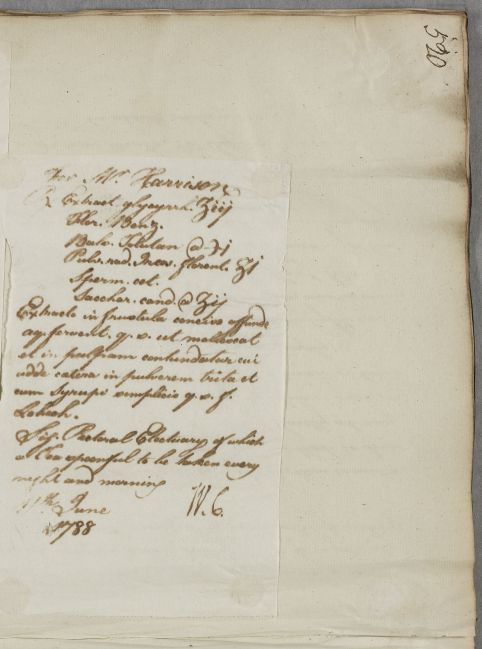 590
For Mr. Harrison
℞ Extract. glycyrrh. ʒiij
Flor. Benz.
Bals. Tolutan a ʒj
Pulv. rad. Ireos. florent. ʒj
Sperm. cet.
Sacchar. cand. a ʒij
Extracto in frustula conciso affunde
aq. fervent. q. s. ut mollescat
et in pulpam contundatur cui
adde cætera in pulverem trita et
cum Syrupi simplicis q. s. f.
Lohoch.
Sig. Pectoral Electuary of which
a Teaspoonful to be taken every
night and morning
11th June W. C.
1788